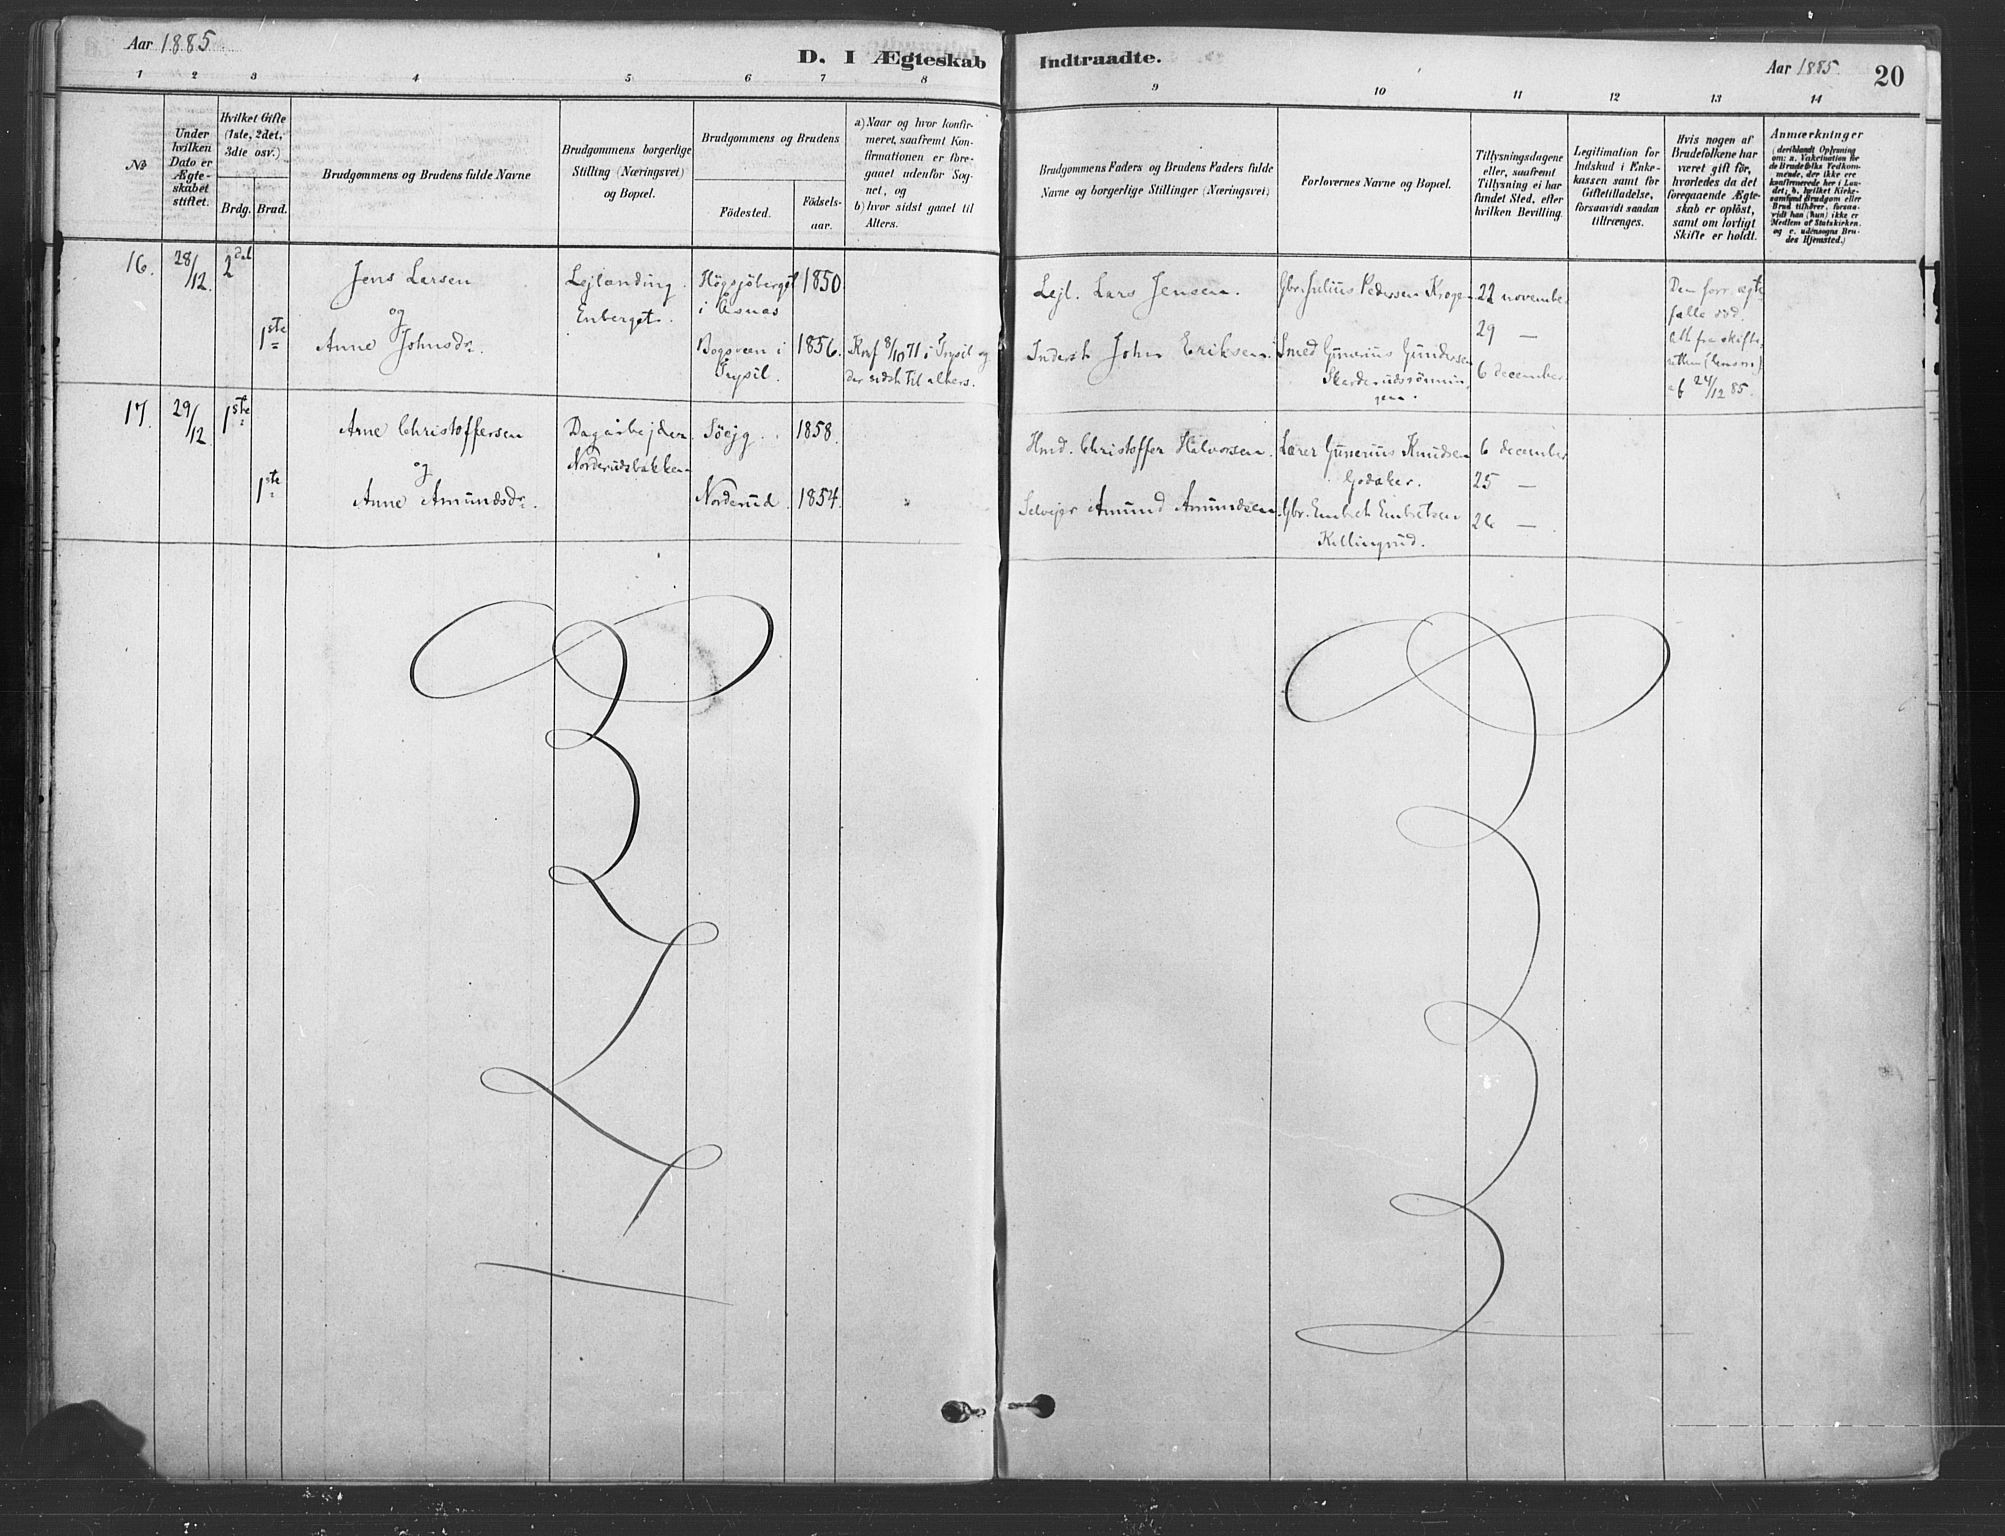 Aar 1885.
D. I Ægteskab Indtraadte.
Aar 1885. 20
1 2 3 4 5 6 7 8 9 10 11 12 13 14
No
Under hvilken Dato er Ægteskabet stiftet.
Hvilket Gifte (1ste, 2det, 3die osv.)
Brdg. Brud.
Brudgommens og Brudens fulde Navne
Brudgommens borgerlige Stilling (Næringsvei) og Bopæl.
Brudgommens og Brudens
Födested.
Födselsaar.
a) Naar og hvor konfirmeret, saafremt Konfirmationen er foregaaet udenfor Sognet, og
b) hvor sidst gaaet til Alters.
Brudgommens Faders og Brudens Faders fulde Navne og borgerlige Stillinger (Næringsvei)
Forlovernes Navne og Bopæl.
Tillysningsdagene eller, saafremt Tillysning ei har fundet Sted, efter hvilken Bevilling.
Legitimation for Indskud i Enkekassen samt for Giftetilladelse, forsaavidt saadan tiltrænges.
Hvis nogen af Brudefolkene har været gift før, hvorledes da det foregaaende Ægteskab er opløst, samt om lovligt Skifte er holdt.
Anmærkninger
(deriblandt Oplysning om: a. Vakcination for de Brudefolks Vedkommende, der ikke ere konfirmerede her i Landet; b. hvilket Kirkesamfund Brudgom eller Brud tilhører, forsaavidt han (hun) ikke er Medlem af Statskirken, og c. udensogns Brudes Hjemsted.)
16. 28/12. 2det
Jens Larsen
og
1ste Anne Johnsdr.
Lejlænding
Enberget.
Högsjöberget
i Åsnæs
1850
Bogsveen i
Trysil.
1856.
Konf 8/10 71 i Trysil og
der sidst til alters.
Lejl. Lars Jensen.
Inderst John Eriksen.
Gbr. Julius Pedersen Krogen
Smed Gunerius Gundersen
22 november
29 —
6 december
Den forr. ægte
fælle död.
att fra skifte
af 24/12 85.
17. 29/12 1ste
Arne Christoffersen
og
1ste Anne Amundsdr.
Dagarbejder.
Norderudsbakken
Söejg.
1858.
Norderud.
1854.
Hmd. Christoffer Halvorsen.
Selvejer Amund Amundsen.
Lærer Gunerius Knudsen
Godaker.
Gbr. Embret Embretsen
Killingrud.
6 december
25 —
26 —